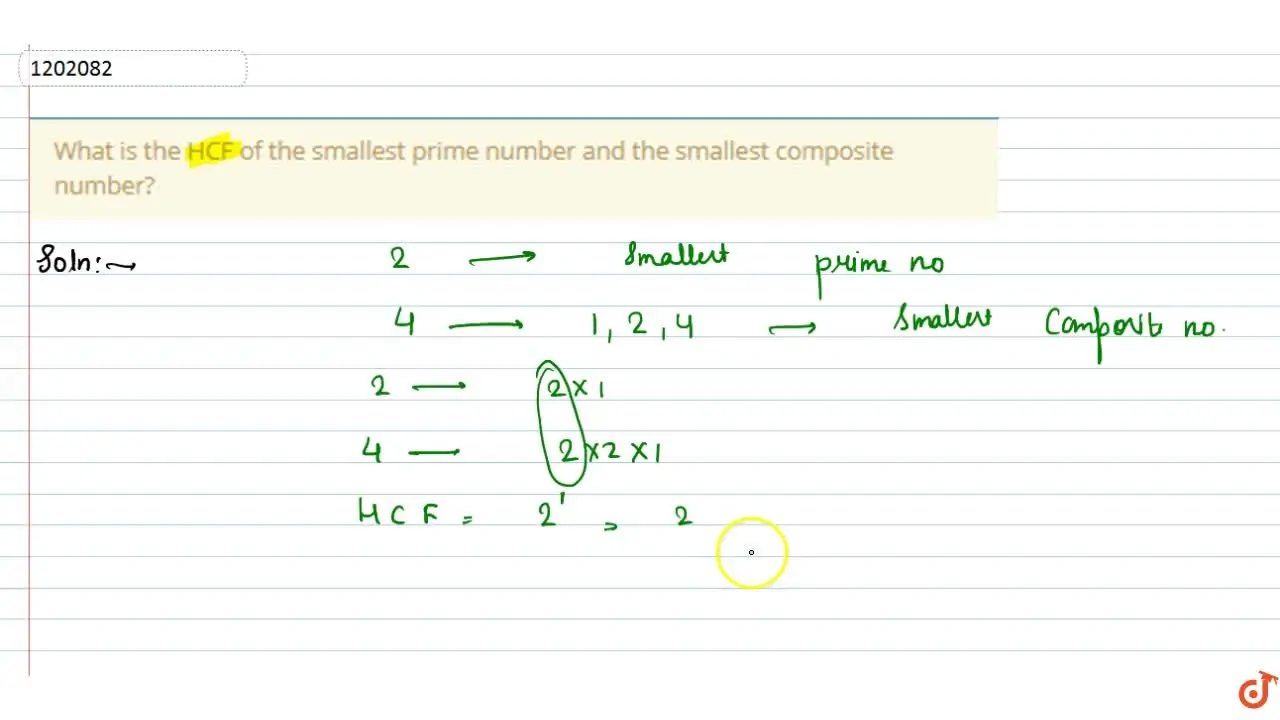 1202082
What is the HCF of the smallest prime number and the smallest composite
number?
Soln:→ 2 → Smallest prime no
4 → 1, 2, 4 → Smallest Composite no.
2 — 2 × 1
4 — 2 × 2 × 1
HCF = 2¹ = 2